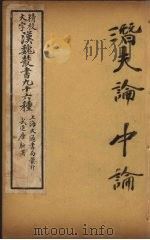 潛夫論 中論
精校
大字
漢魏叢書九十六種
上海大通書局
武進唐駝署